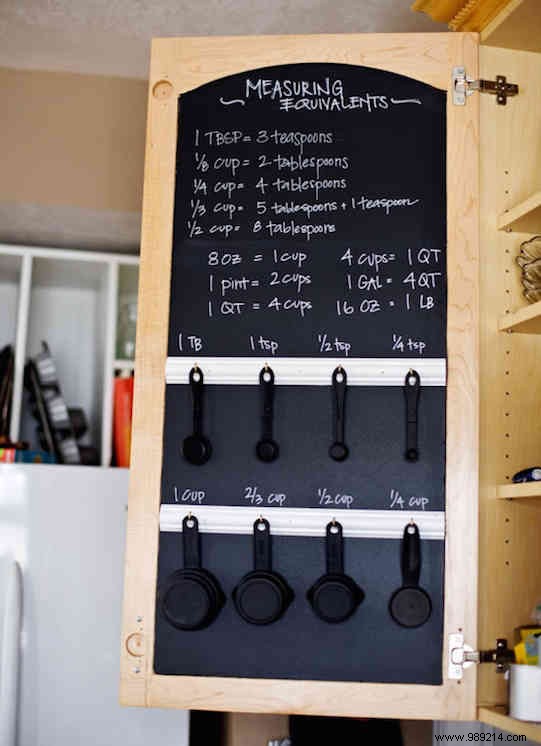 MEASURING
EQUIVALENTS
1 TBSP = 3 teaspoons
1/8 cup = 2 tablespoons
1/4 cup = 4 tablespoons
1/3 cup = 5 tablespoons + 1 teaspoon
1/2 cup = 8 tablespoons
8 OZ = 1 cup 4 cups = 1 QT
1 pint = 2 cups 1 GAL = 4 QT
1 QT = 4 cups 16 OZ = 1 LB
1 TB 1 tsp 1/2 tsp 1/4 tsp
1 cup 2/3 cup 1/2 cup 1/4 cup
www.989214.com